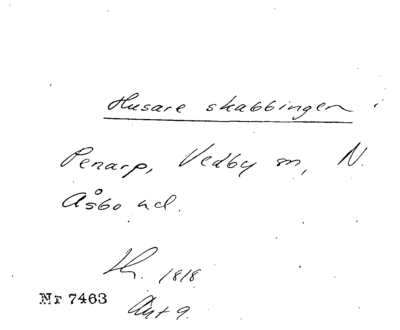 Husare skabbingen
Penarp, Vedby sn, N.
Åsbo hd.
1818
Nr 7463